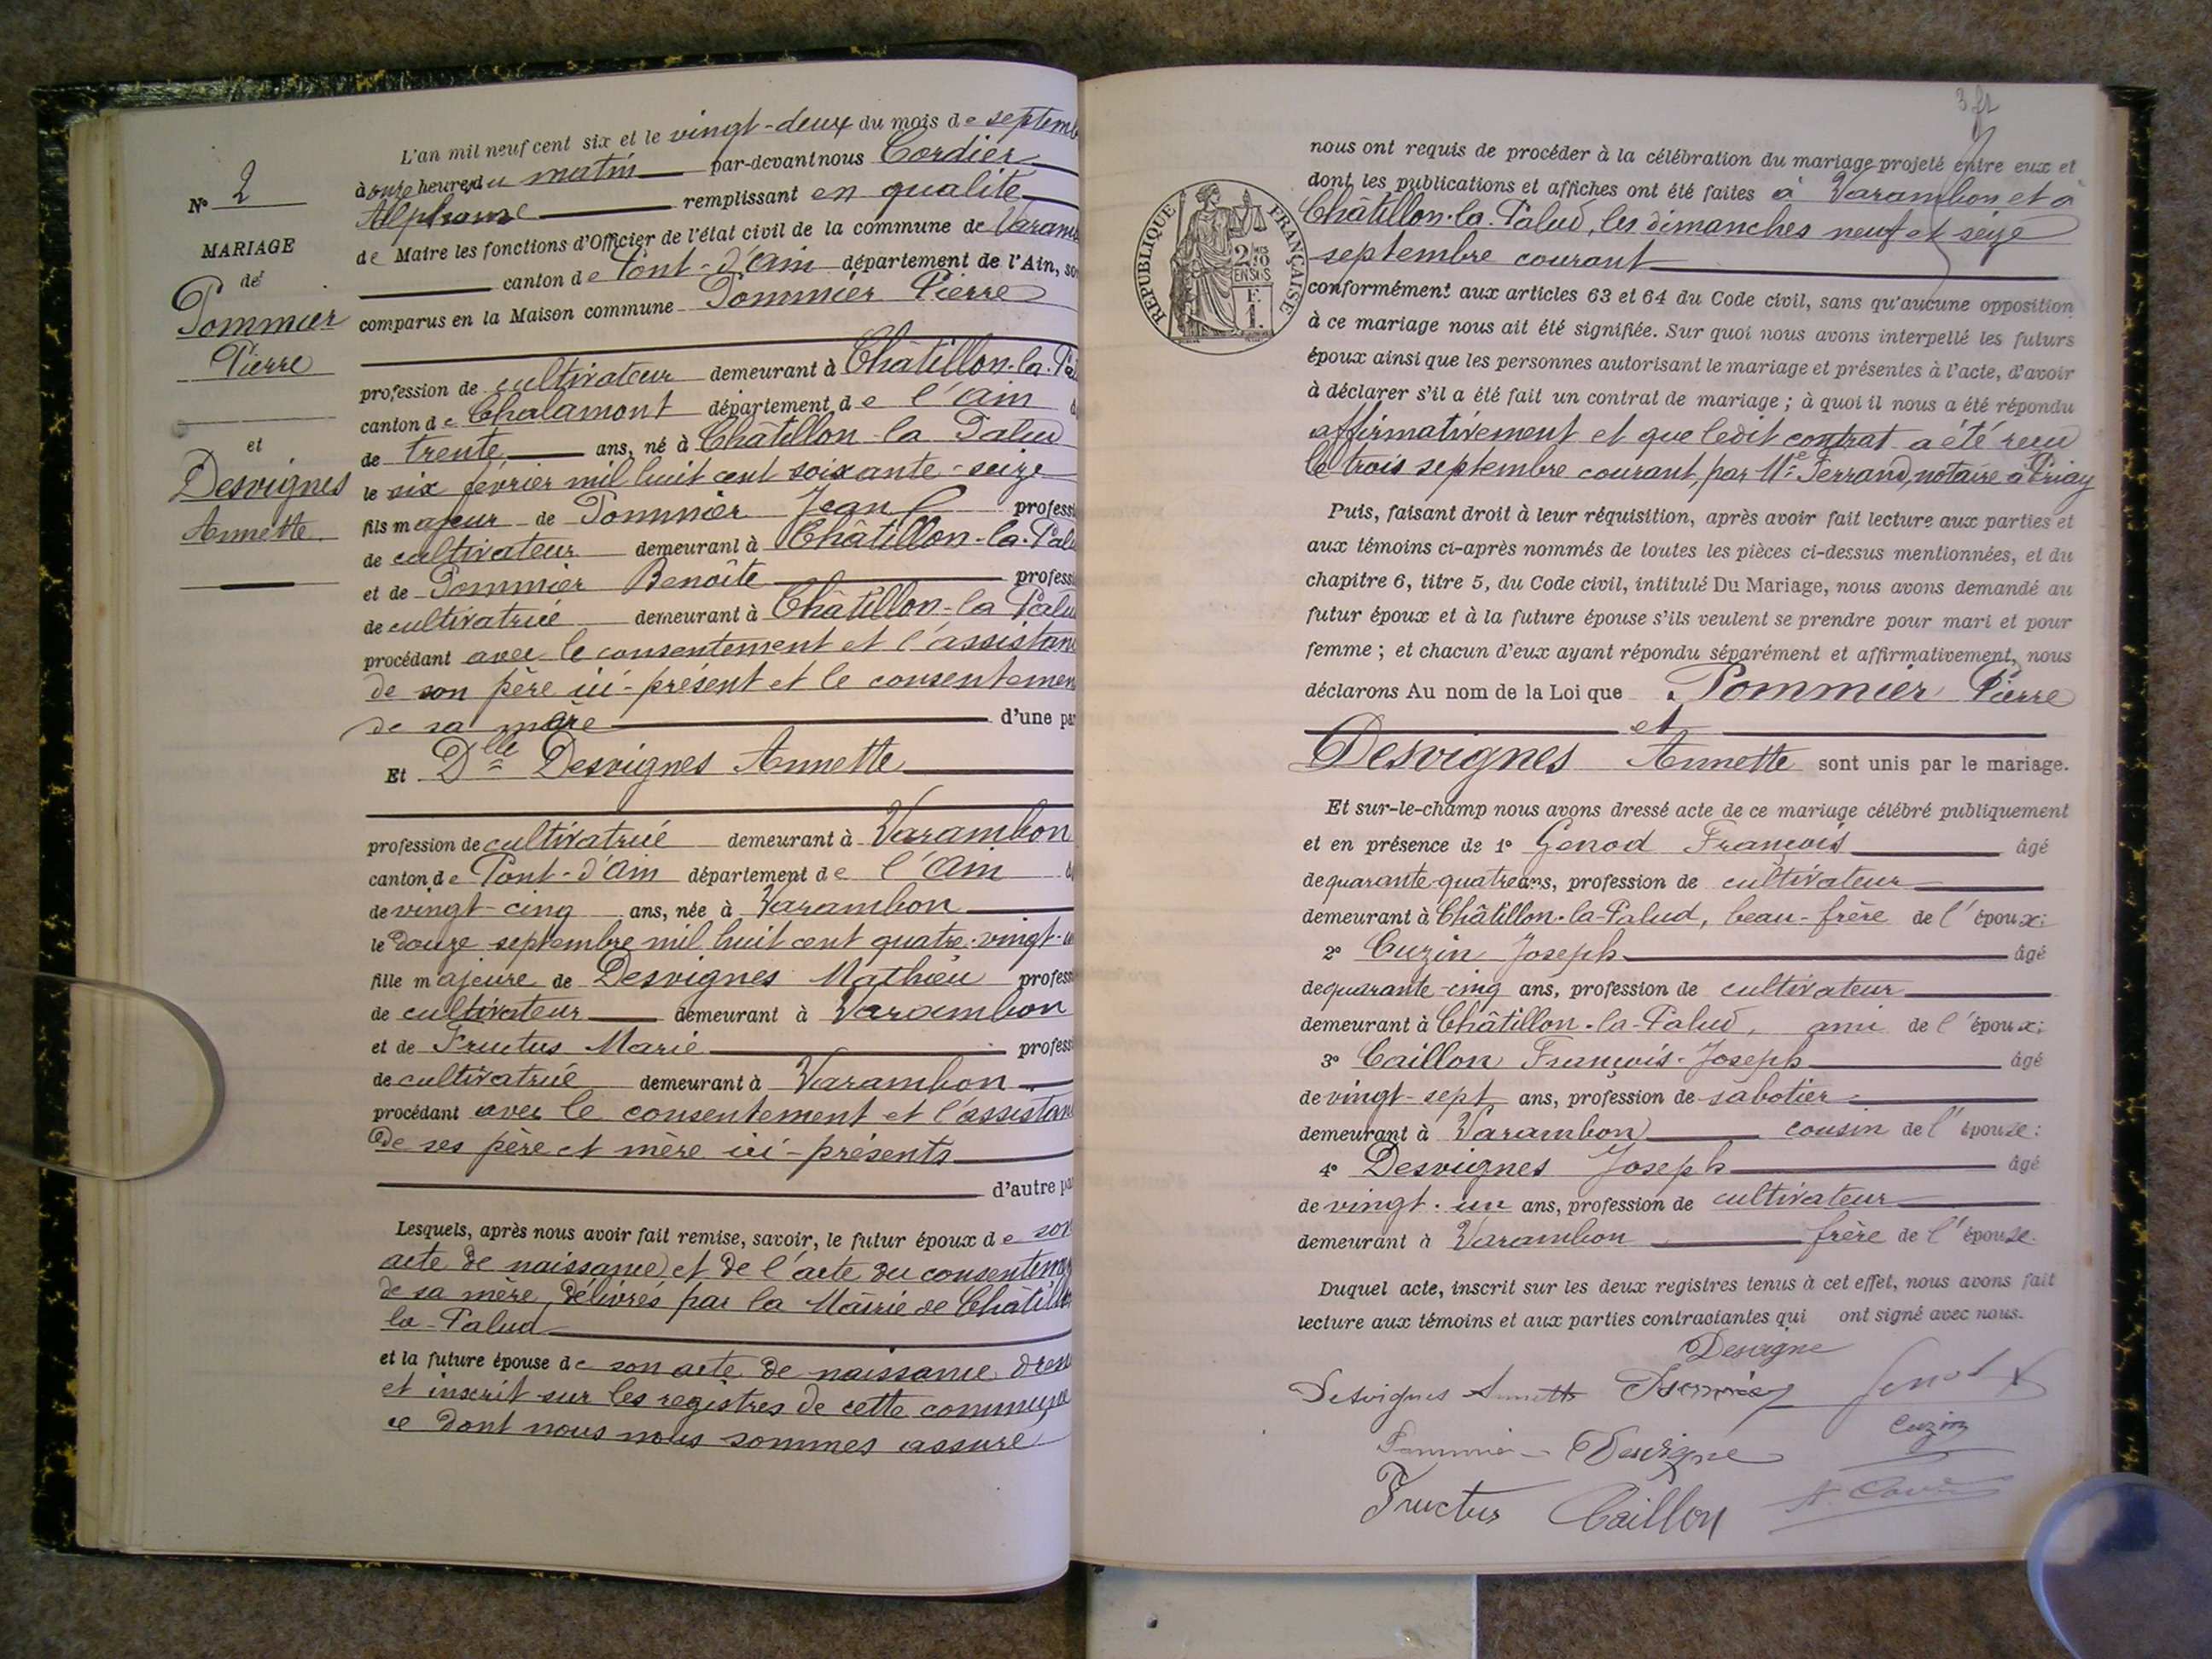 N° 2
MARIAGE
de
Pommier
Pierre
et
Desvignes
Annette
L'an mil neuf cent six et le vingt-deux du mois de septemb
à onze heures du matin par-devant nous Cordier
Alphonse remplissant en qualité
de Maire les fonctions d'Officier de l'état civil de la commune de Varam
canton de Pont-d'Ain département de l'Ain, so
comparus en la Maison commune Pommier Pierre
profession de cultivateur demeurant à Châtillon-la-Pa
canton de Chalamont département de l'Ain
de trente ans, né à Châtillon-la Palud
le six février mil huit cent soixante-seize
fils majeur de Pommier Jean profess
de cultivateur demeurant à Châtillon-la-Palu
et de Pommier Benoîte profess
de cultivatrice demeurant à Châtillon-la Palu
procédant avec le consentement et l'assistan
de son père ici-présent et le consentemen
de sa mère d'une pa
Et Dlle Desvignes Annette
profession de cultivatrice demeurant à Varambon
canton de Pont-d'Ain département de l'Ain
de vingt-cinq ans, née à Varambon
le douze septembre mil huit cent quatre-vingt-u
fille majeure de Desvignes Mathieu profess
de cultivateur demeurant à Varambon
et de Fructus Marie profess
de cultivatrice demeurant à Varambon
procédant avec le consentement et l'assistan
de ses père et mère ici-présents
d'autre pa
Lesquels, après nous avoir fait remise, savoir, le futur époux de son
acte de naissance et de l'acte du consentem
de sa mère, délivrés par la Mairie de Châtill
la-Palud
et la future épouse de son acte de naissance dress
et inscrit sur les registres de cette commune
ce dont nous nous sommes assuré
3 fr
nous ont requis de procéder à la célébration du mariage projeté entre eux et
dont les publications et affiches ont été faites à Varambon et à
Châtillon-la-Palud, les dimanches neuf et seize
septembre courant
RÉPUBLIQUE FRANÇAISE
conformément aux articles 63 et 64 du Code civil, sans qu'aucune opposition
à ce mariage nous ait été signifiée. Sur quoi nous avons interpellé les futurs
époux ainsi que les personnes autorisant le mariage et présentes à l'acte, d'avoir
à déclarer s'il a été fait un contrat de mariage ; à quoi il nous a été répondu
affirmativement et que ledit contrat a été reçu
le trois septembre courant, par Me Ferrand, notaire à Priay
Puis, faisant droit à leur réquisition, après avoir fait lecture aux parties et
aux témoins ci-après nommés de toutes les pièces ci-dessus mentionnées, et du
chapitre 6, titre 5, du Code civil, intitulé Du Mariage, nous avons demandé au
futur époux et à la future épouse s'ils veulent se prendre pour mari et pour
femme ; et chacun d'eux ayant répondu séparément et affirmativement, nous
déclarons Au nom de la Loi que Pommier Pierre
et
Desvignes Annette sont unis par le mariage.
Et sur-le-champ nous avons dressé acte de ce mariage célébré publiquement
et en présence de 1° Genod François âgé
de quarante-quatre ans, profession de cultivateur
demeurant à Châtillon-la-Palud, beau-frère de l'époux;
2° Cuzin Joseph âgé
de quarante-cinq ans, profession de cultivateur
demeurant à Châtillon-la-Palud, ami de l'époux;
3° Caillon François-Joseph âgé
de vingt-sept ans, profession de sabotier
demeurant à Varambon cousin de l'épouse;
4° Desvignes Joseph âgé
de vingt-un ans, profession de cultivateur
demeurant à Varambon frère de l'épouse.
Duquel acte, inscrit sur les deux registres tenus à cet effet, nous avons fait
lecture aux témoins et aux parties contractantes qui ont signé avec nous.
Desvigne
Desvignes Annette Genod
Cuzin
Pommier Desvigne
Fructus Caillon